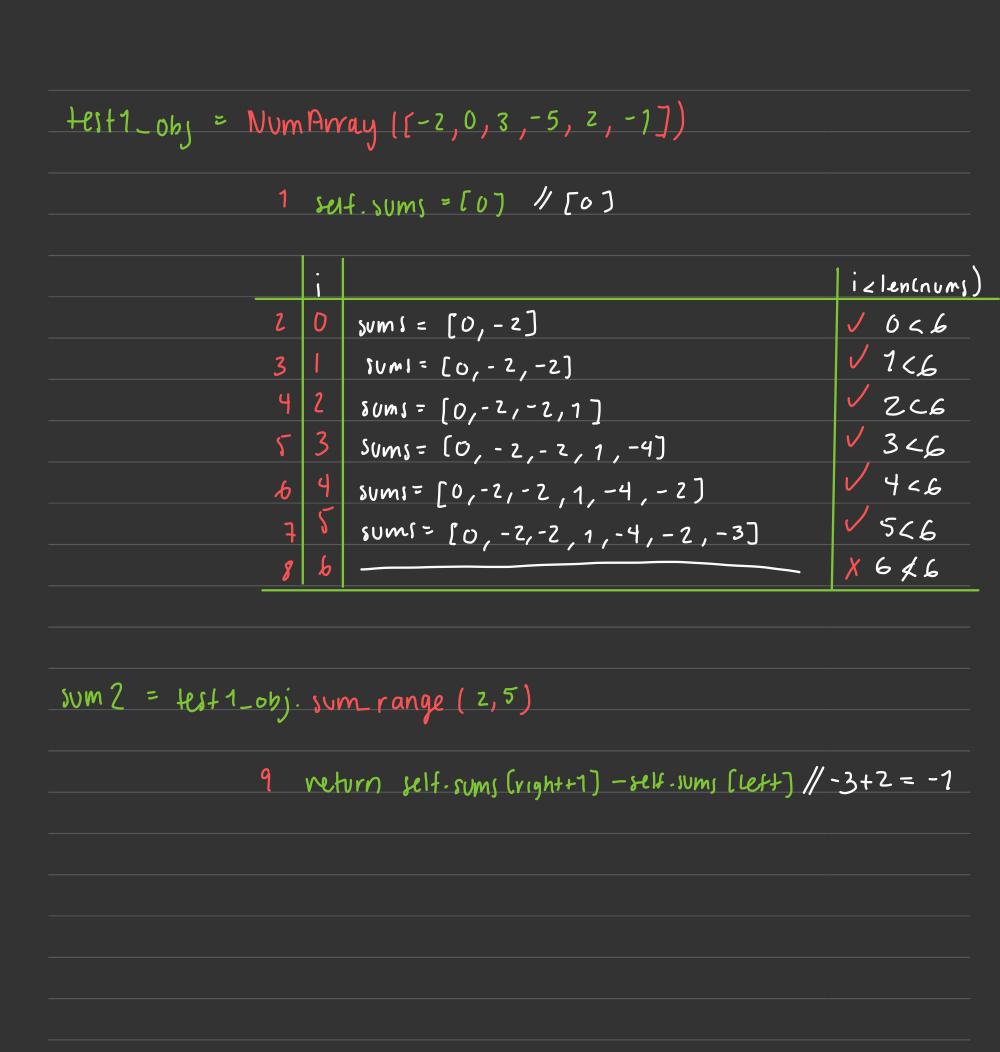 test1_obj = NumArray([-2, 0, 3, -5, 2, -1])
1 self.sums = [0] // [0]
i i < len(nums)
2 0 sums = [0, -2] ✓ 0 < 6
3 1 sums = [0, -2, -2] ✓ 1 < 6
4 2 sums = [0, -2, -2, 1] ✓ 2 < 6
5 3 sums = [0, -2, -2, 1, -4] ✓ 3 < 6
6 4 sums = [0, -2, -2, 1, -4, -2] ✓ 4 < 6
7 5 sums = [0, -2, -2, 1, -4, -2, -3] ✓ 5 < 6
8 6 ✗ 6 ≮ 6
sum2 = test1_obj.sum_range(2,5)
9 return self.sums[right+1] - self.sums[left] // -3+2 = -1